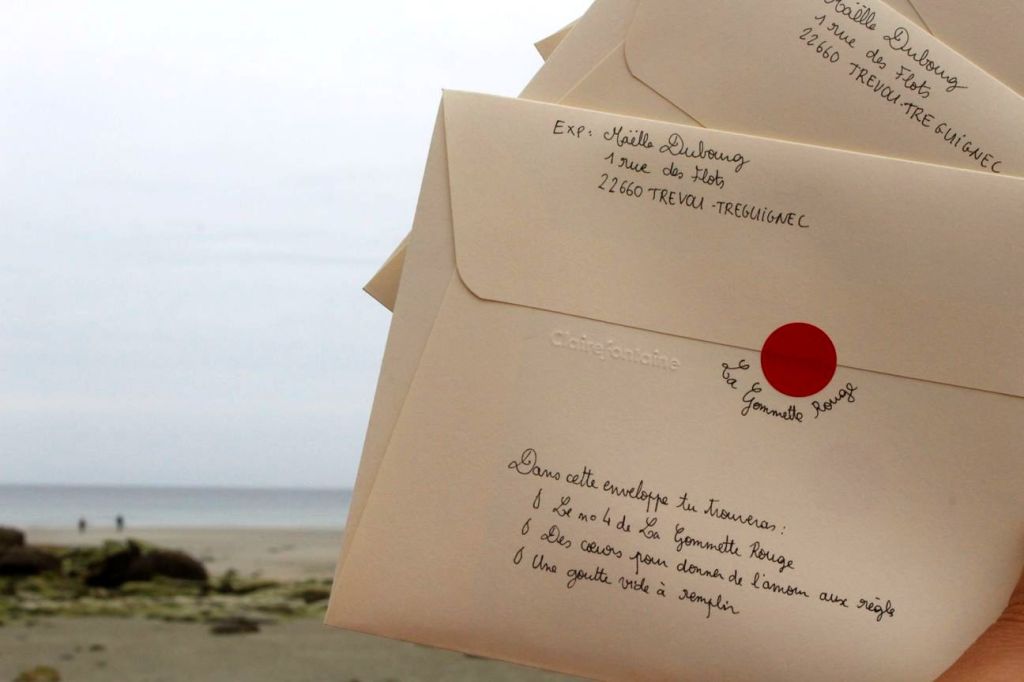 Maëlle Dubourg
1 rue des Flots
22660 TREVOU-TREGUIGNEC
Exp: Maëlle Dubourg
1 rue des Flots
22660 TREVOU-TREGUIGNEC
Clairefontaine
La Gommette Rouge
Dans cette enveloppe tu trouveras:
Le no 4 de La Gommette Rouge
Des cœurs pour donner de l'amour aux règle
Une goutte vide à remplir